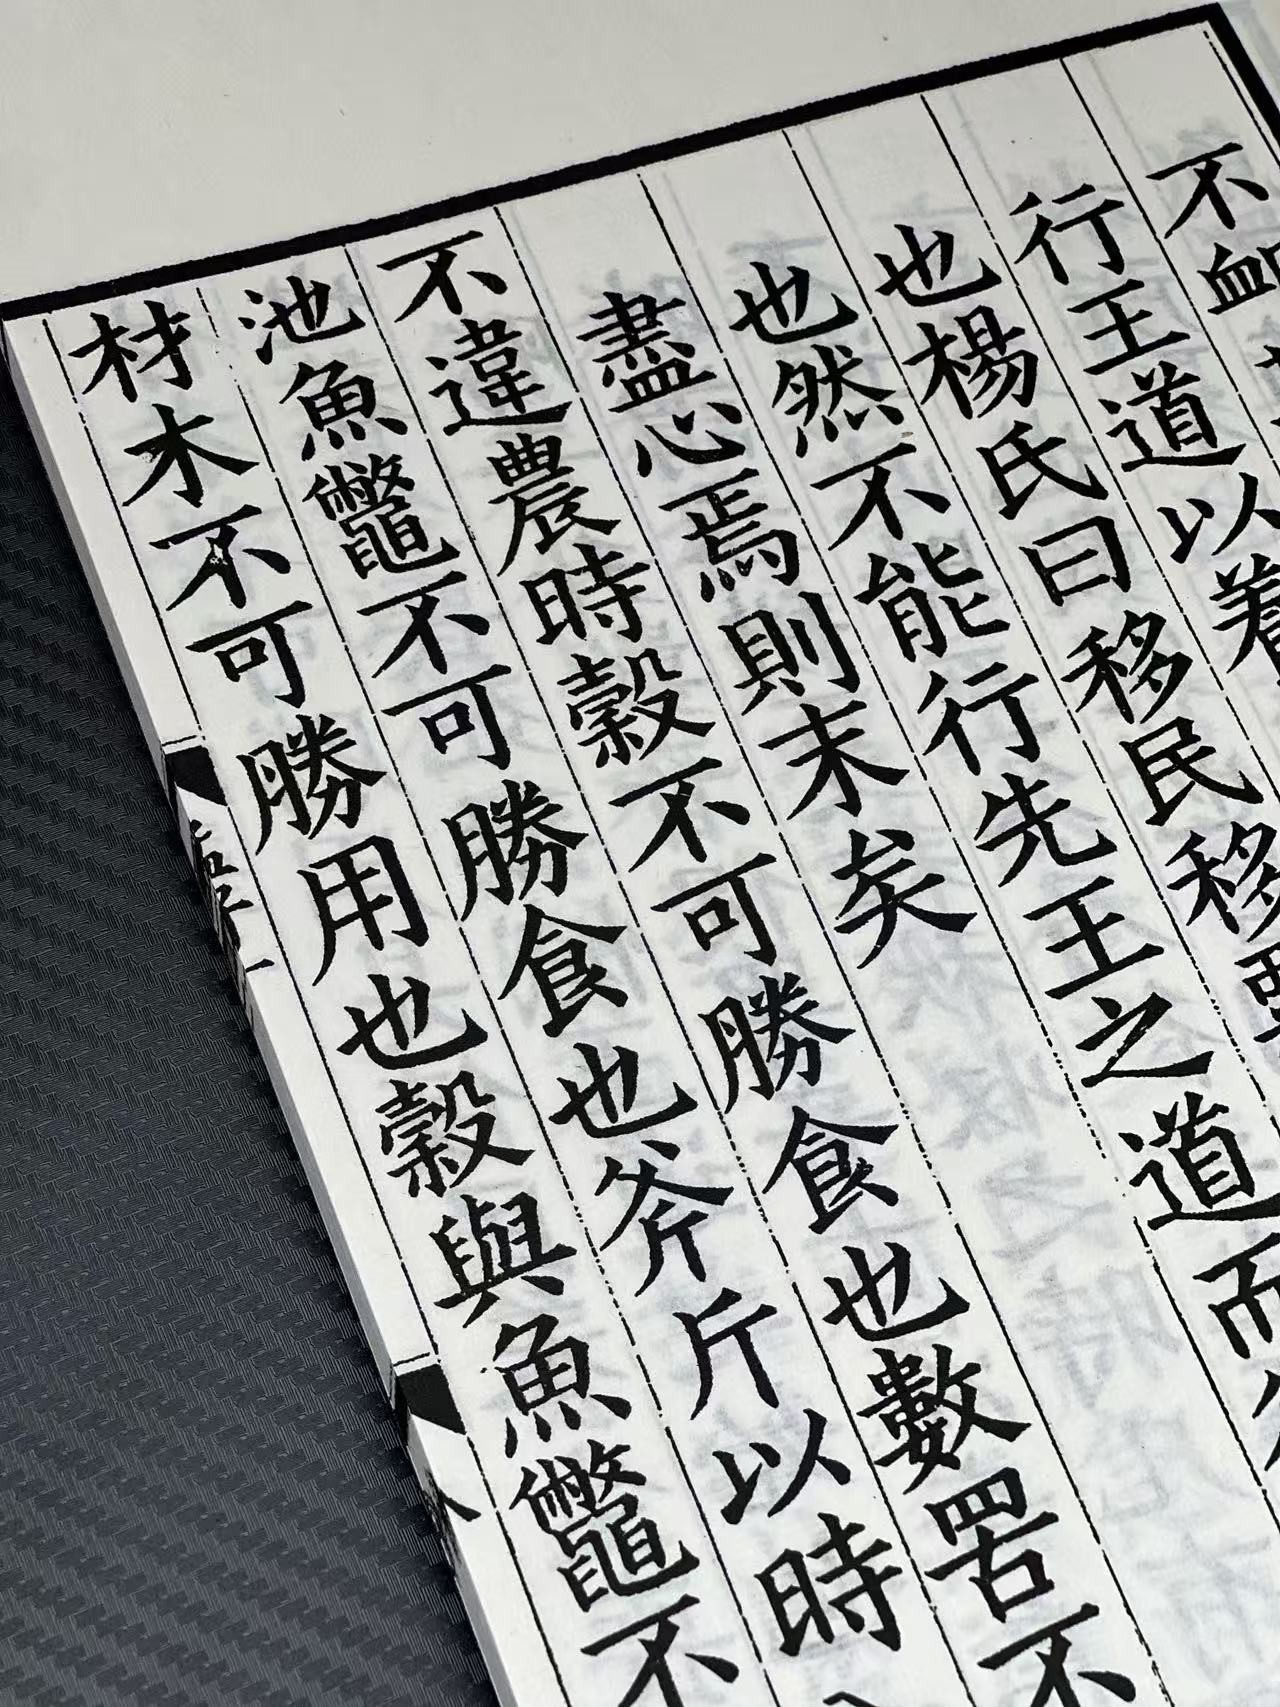 不卹
行王道以養
也楊氏曰移民移
也然不能行先王之道而
盡心焉則末矣
不違農時穀不可勝食也數罟不
池魚鼈不可勝食也斧斤以時
材木不可勝用也穀與魚鼈不
孟子一
八